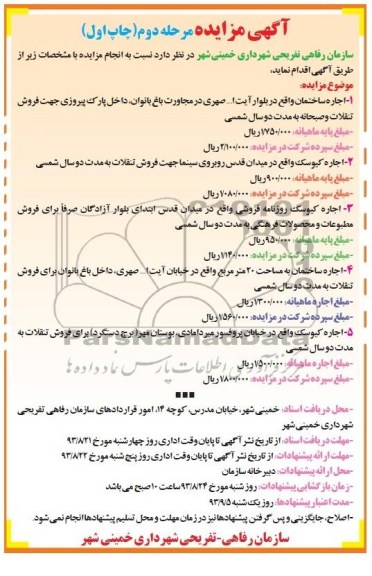 آگهی مزایده مرحله دوم (چاپ اول)
سازمان رفاهی تفریحی شهرداری خمینی شهر در نظر دارد نسبت به انجام مزایده با مشخصات زیر از
طریق آگهی اقدام نماید.
موضوع مزایده:
۱-اجاره ساختمان واقع در بلوار آیت ا... صهری در مجاورت باغ بانوان، داخل پارک پیروزی جهت فروش
تنقلات و صبحانه به مدت دو سال شمسی
-مبلغ پایه ماهیانه: ۱۷۵۰/۰۰۰ریال
-مبلغ سپرده شرکت در مزایده: ۲/۱۰۰/۰۰۰ریال
۲-اجاره کیوسک واقع در میدان قدس روبروی سینما جهت فروش تنقلات به مدت دو سال شمسی
-مبلغ پایه ماهیانه: ۹۰۰/۰۰۰ریال
-مبلغ سپرده شرکت در مزایده: ۷۰۸۰/۰۰۰ریال
۳- اجاره کیوسک روزنامه فروشی واقع در میدان قدس ابتدای بلوار آزادگان صرفاً برای فروش
مطبوعات و محصولات فرهنگی به مدت دو سال شمسی
-مبلغ پایه ماهیانه: ۹۵۰/۰۰۰ریال
-مبلغ سپرده شرکت در مزایده: ۱۱۴۰/۰۰۰ریال
۴-اجاره ساختمان به مساحت ۲۰ متر مربع واقع در خیابان آیت ا... صهری، داخل باغ بانوان برای فروش
تنقلات به مدت دو سال شمسی
-مبلغ اجاره ماهیانه: ۱۳۰۰/۰۰۰ریال
-مبلغ سپرده شرکت در مزایده: ۱۵۶۰/۰۰۰ریال
۵-اجاره کیوسک واقع در خیابان پروفسور میردامادی، بوستان مهر( برج دستکرد) برای فروش تنقلات به
مدت دو سال شمسی
-مبلغ اجاره ماهیانه: ۱۵۰۰/۰۰۰ریال
-مبلغ سپرده شرکت در مزایده: ۱۸۰۰/۰۰۰ریال
-محل دریافت اسناد: خمینی شهر، خیابان مدرس، کوچه ۱۴، امور قراردادهای سازمان رفاهی تفریحی
شهرداری خمینی شهر
-مهلت دریافت اسناد: از تاریخ نشر آگهی تا پایان وقت اداری روز چهارشنبه مورخ ۹۳/۸/۲۱
-مهلت ارائه پیشنهادات: از تاریخ نشر آگهی تا پایان وقت اداری روز پنج شنبه مورخ ۹۳/۸/۲۲
-محل ارائه پیشنهادات: دبیرخانه سازمان
-زمان بازگشایی پیشنهادات: روز شنبه مورخ ۹۳/۸/۲۴ ساعت ۱۰ صبح می باشد
-مدت اعتبار پیشنهادها: روز یک شنبه ۹۳/۹/۵
-اصلاح، جایگزینی و پس گرفتن پیشنهادها نیز در زمان مهلت و محل تسلیم پیشنهادها انجام نمی شود.
سازمان رفاهی-تفریحی شهرداری خمینی شهر
ParsNamadData